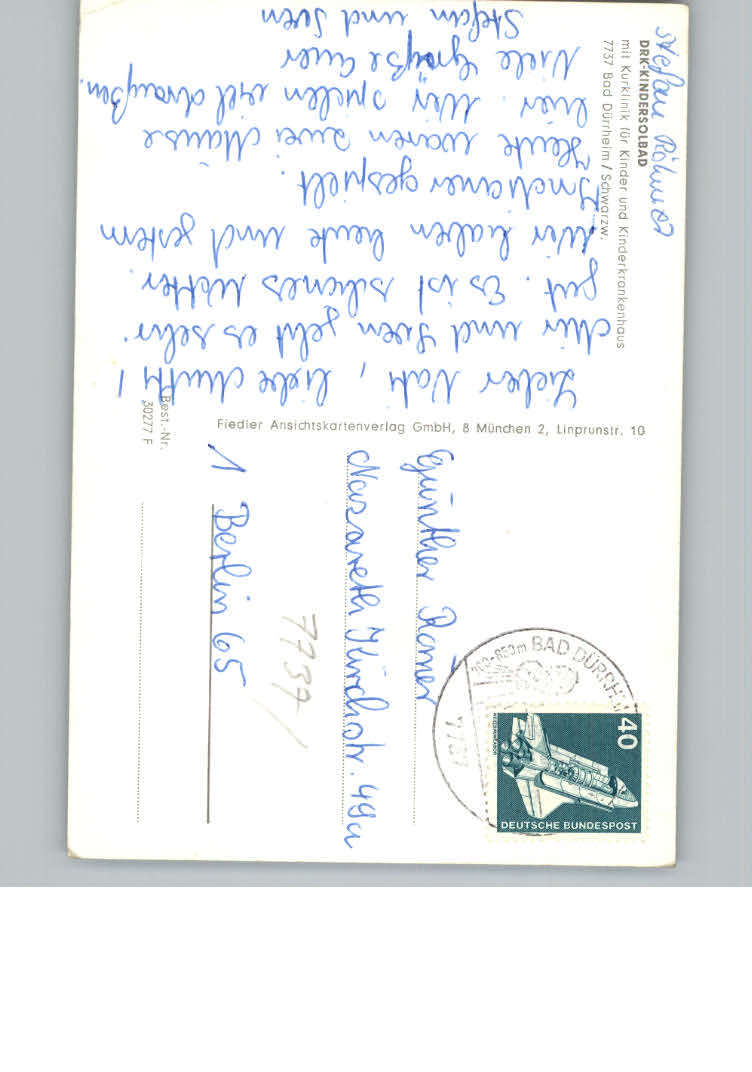 Stefan Römer
DRK-KINDERSOLBAD
mit Kurklinik für Kinder und Kinderkrankenhaus
7737 Bad Dürrheim / Schwarzw.
Lieber Vati, liebe Mutti!
Mir und Sven geht es sehr
gut. Es ist schönes Wetter.
Wir haben heute und gestern
Indianer gespielt.
Heute waren zwei Mäuse
hier. Wir spielen viel draußen.
Viele Grüße euer
Stefan und Sven
Fiedler Ansichtskartenverlag GmbH, 8 München 2, Linprunstr. 10
Best.-Nr.
30277 F
Günther Römer
Nazareth Kirchstr. 49a
1 Berlin 65
7737/
BAD DÜRRHEI
-850m
7737
40
DEUTSCHE BUNDESPOST